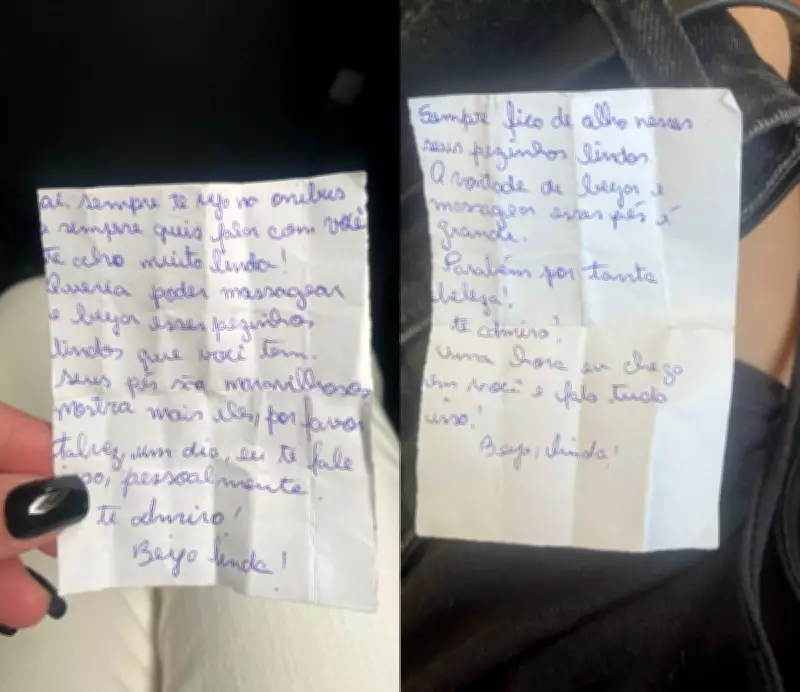 oi, sempre te vejo no onibus
e sempre quis falar com você
te acho muito linda!
Queria poder massagear
e beijar esses pezinhos
lindos que você tem.
seus pés são maravilhosos
mostra mais eles, por favor
talvez, um dia, eu te fale
isso, pessoalmente.
te admiro!
Beijo linda!
Sempre fico de olho nesses
seus pezinhos lindos
A vontade de beijar e
massagear esses pés é
grande.
Parabém por tanta
beleza!
te admiro!
uma hora eu chego
em você e falo tudo
isso!
Beijo, linda!